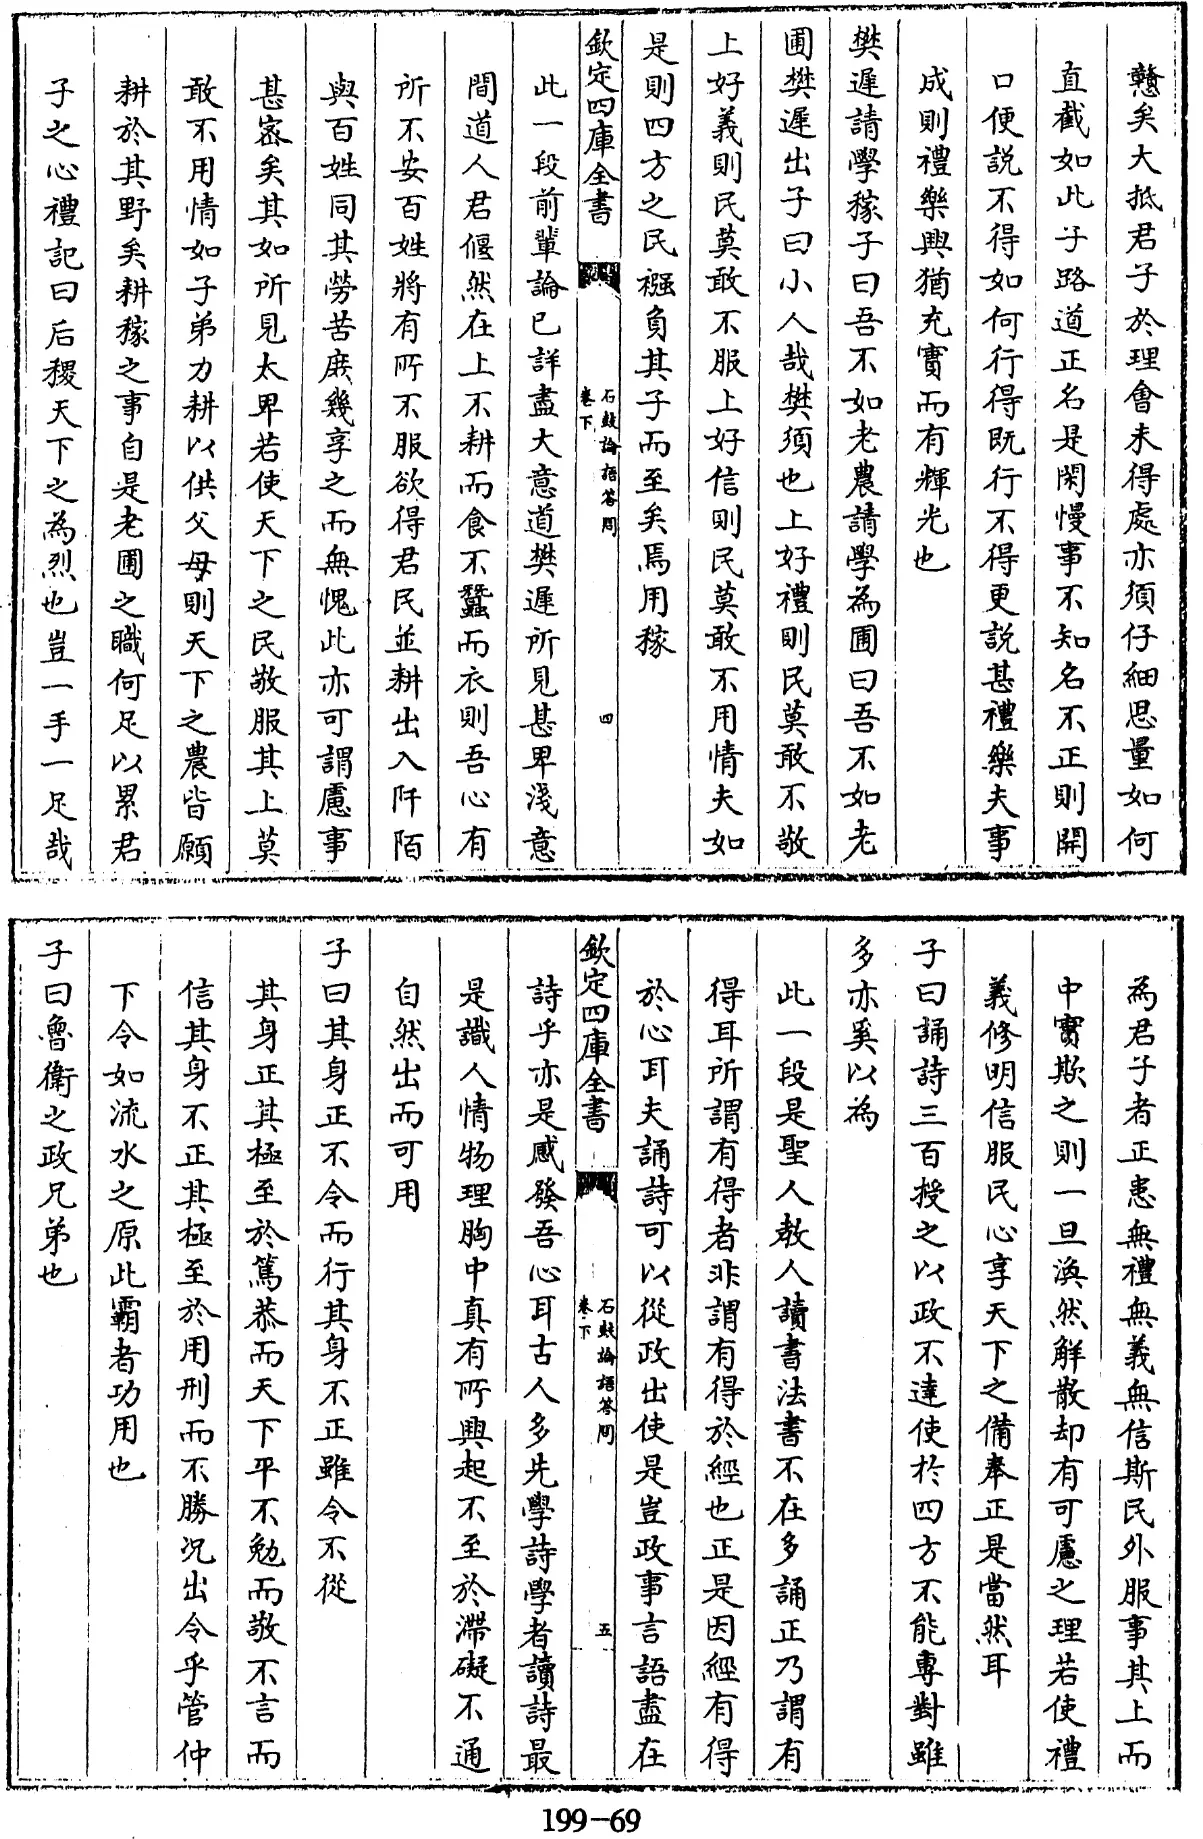 戇矣大抵君子於理會未得處亦須仔細思量如何
直截如此子路道正名是閑慢事不知名不正則開
口便説不得如何行得既行不得更説甚禮樂夫事
成則禮樂興猶充實而有輝光也
樊遲請學稼子曰吾不如老農請學為圃曰吾不如老
圃樊遲出子曰小人哉樊須也上好禮則民莫敢不敬
上好義則民莫敢不服上好信則民莫敢不用情夫如
是則四方之民襁負其子而至矣焉用稼
欽定四庫全書
石鼓論語答問
卷下
四
此一段前輩論已詳盡大意道樊遲所見甚卑淺意
間道人君偃然在上不耕而食不蠶而衣則吾心有
所不安百姓將有所不服欲得君民並耕出入阡陌
與百姓同其勞苦庶幾享之而無愧此亦可謂慮事
甚宻矣其如所見太卑若使天下之民敬服其上莫
敢不用情如子弟力耕以供父母則天下之農皆願
耕於其野矣耕稼之事自是老圃之職何足以累君
子之心禮記曰后稷天下之為烈也豈一手一足哉
為君子者正患無禮無義無信斯民外服事其上而
中實欺之則一旦渙然解散却有可慮之理若使禮
義修明信服民心享天下之備奉正是當然耳
子曰誦詩三百授之以政不達使於四方不能專對雖
多亦奚以為
此一段是聖人教人讀書法書不在多誦正乃謂有
得耳所謂有得者非謂有得於經也正是因經有得
於心耳夫誦詩可以從政出使是豈政事言語盡在
欽定四庫全書
石鼓論語答問
卷下
五
詩乎亦是感發吾心耳古人多先學詩學者讀詩最
是識人情物理胸中真有所興起不至於滯礙不通
自然出而可用
子曰其身正不令而行其身不正雖令不從
其身正其極至於篤恭而天下平不勉而敬不言而
信其身不正其極至於用刑而不勝況出令乎管仲
下令如流水之原此霸者功用也
子曰魯衛之政兄弟也
199-69